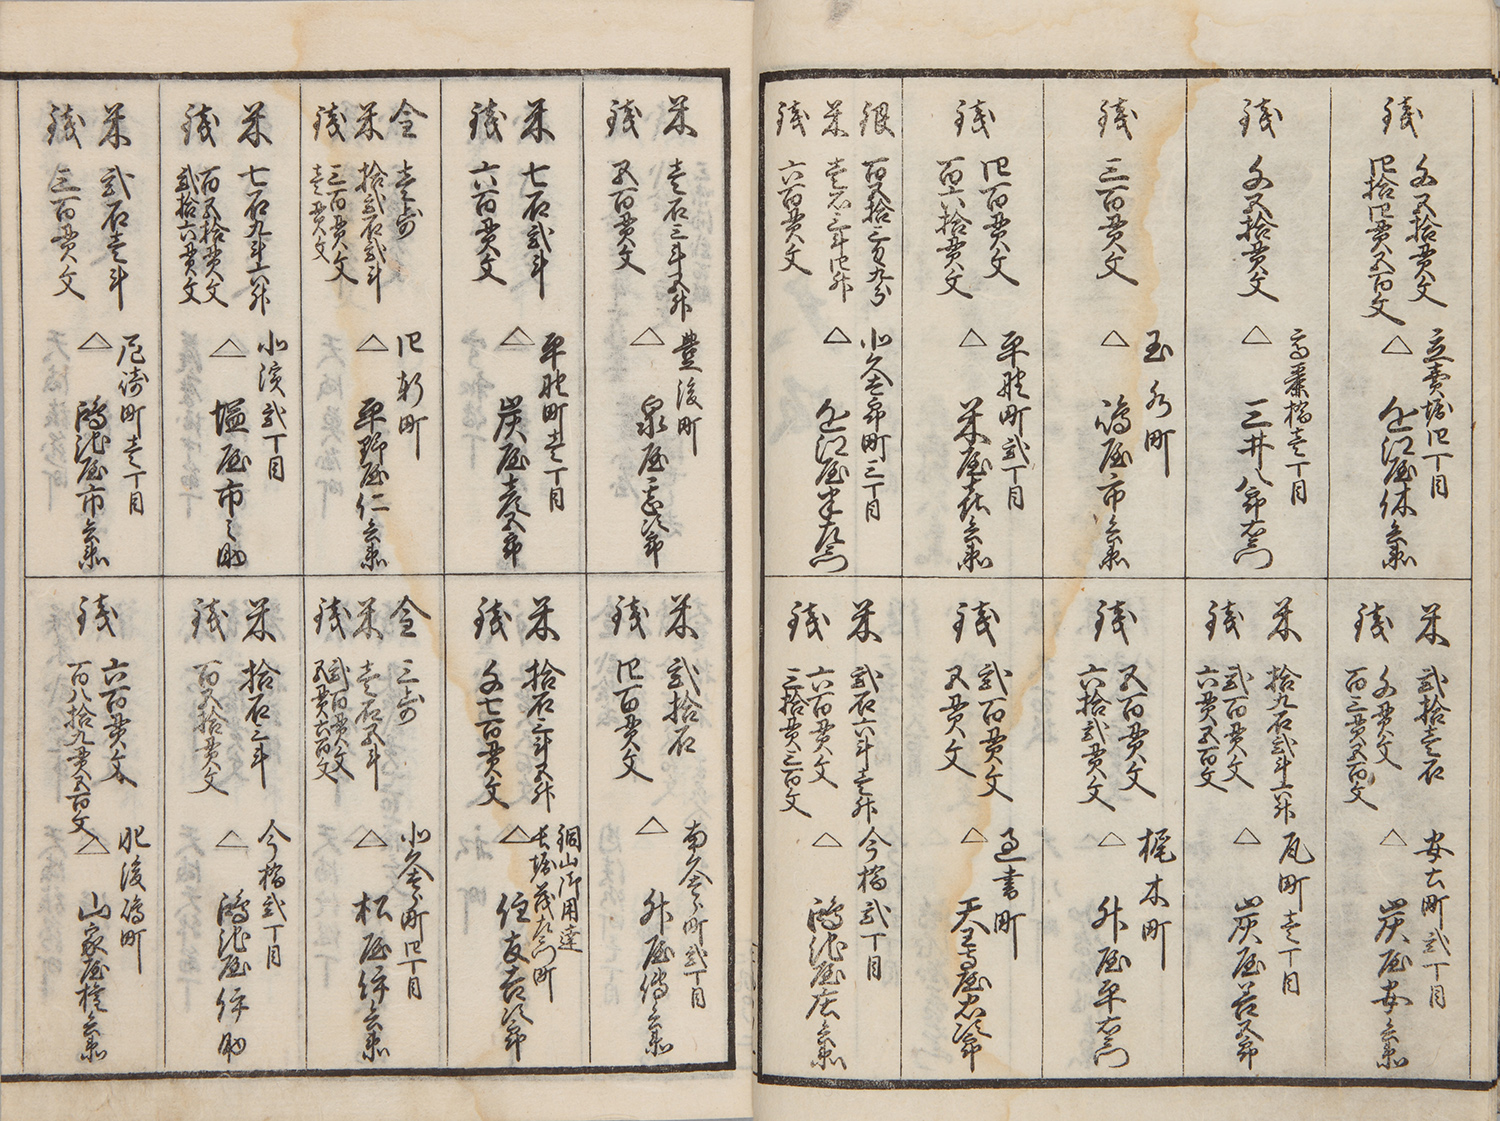 銭
千五拾貫文
四拾四貫五百文
△
立売堀四丁目
近江屋休兵衛
銭
千五拾貫文
△
高麗橋壱丁目
三井八郎右衛門
銭
三百貫文
△
玉水町
嶋屋市兵衛
銭
四百貫文
百六拾貫文
△
平野町弐丁目
米屋喜兵衛
銀
米
銭
百五拾三匁九分
壱石三斗四升
六百貫文
△
北久太郎町三丁目
近江屋半左衛門
米
銭
弐拾壱石
千貫文
百三貫五百文
△
安土町弐丁目
炭屋安兵衛
米
銭
拾九石弐斗六升
弐百貫文
六貫五百文
△
瓦町壱丁目
炭屋善五郎
銭
五百貫文
六拾弐貫文
△
梶木町
升屋平右衛門
銭
弐百貫文
五貫文
△
過書町
天王寺屋忠次郎
米
銭
弐石六斗壱升
六百貫文
三拾貫三百文
△
今橋弐丁目
鴻池屋庄兵衛
米
銭
壱石三斗五升
五百貫文
△
豊後町
泉屋甚次郎
米
銭
七石弐斗
六百貫文
△
平野町壱丁目
炭屋彦五郎
金
米
銭
壱歩
拾弐石弐斗
三百貫文
壱貫文
△
四軒町
平野屋仁兵衛
米
銭
七石九斗六升
百五拾貫文
弐拾六貫文
△
北濱弐丁目
塩屋市之助
米
銭
弐石壱斗
三百貫文
△
尼崎町壱丁目
鴻池屋市兵衛
米
銭
弐拾石
四百貫文
△
南久太郎町弐丁目
升屋傳兵衛
米
銭
拾石三斗五升
千七百貫文
△
銅山御用達
長堀茂左衛門町
住友吉次郎
金
米
銭
三歩
壱石五斗
弐百貫文
五貫六百文
△
北久太郎町四丁目
松屋伊兵衛
米
銭
拾石三斗
百五拾貫文
△
今橋弐丁目
鴻池屋伊助
銭
六百貫文
百八拾九貫五百文
△
肥後嶋町
山家屋権兵衛